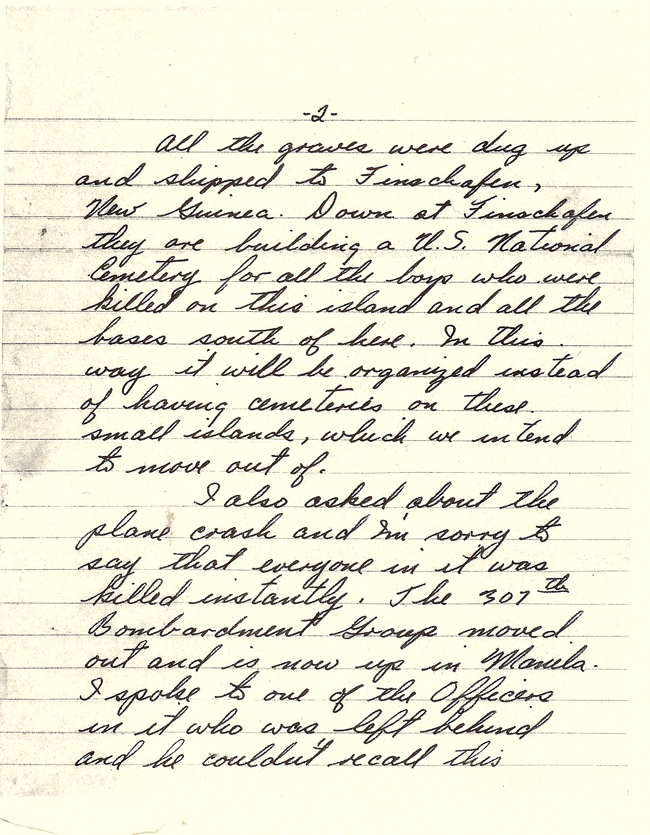 -2-
All the graves were dug up
and shipped to Finschafen,
New Guinea. Down at Finschafen
they are building a U.S. National
Cemetery for all the boys who were
killed on this island and all the
bases south of here. In this
way it will be organized instead
of having cemeteries on these
small islands, which we intend
to move out of.
I also asked about the
plane crash and I'm sorry to
say that everyone in it was
killed instantly. The 307th
Bombardment Group moved
out and is now up in Manila.
I spoke to one of the Officers
in it who was left behind
and he couldn't recall this